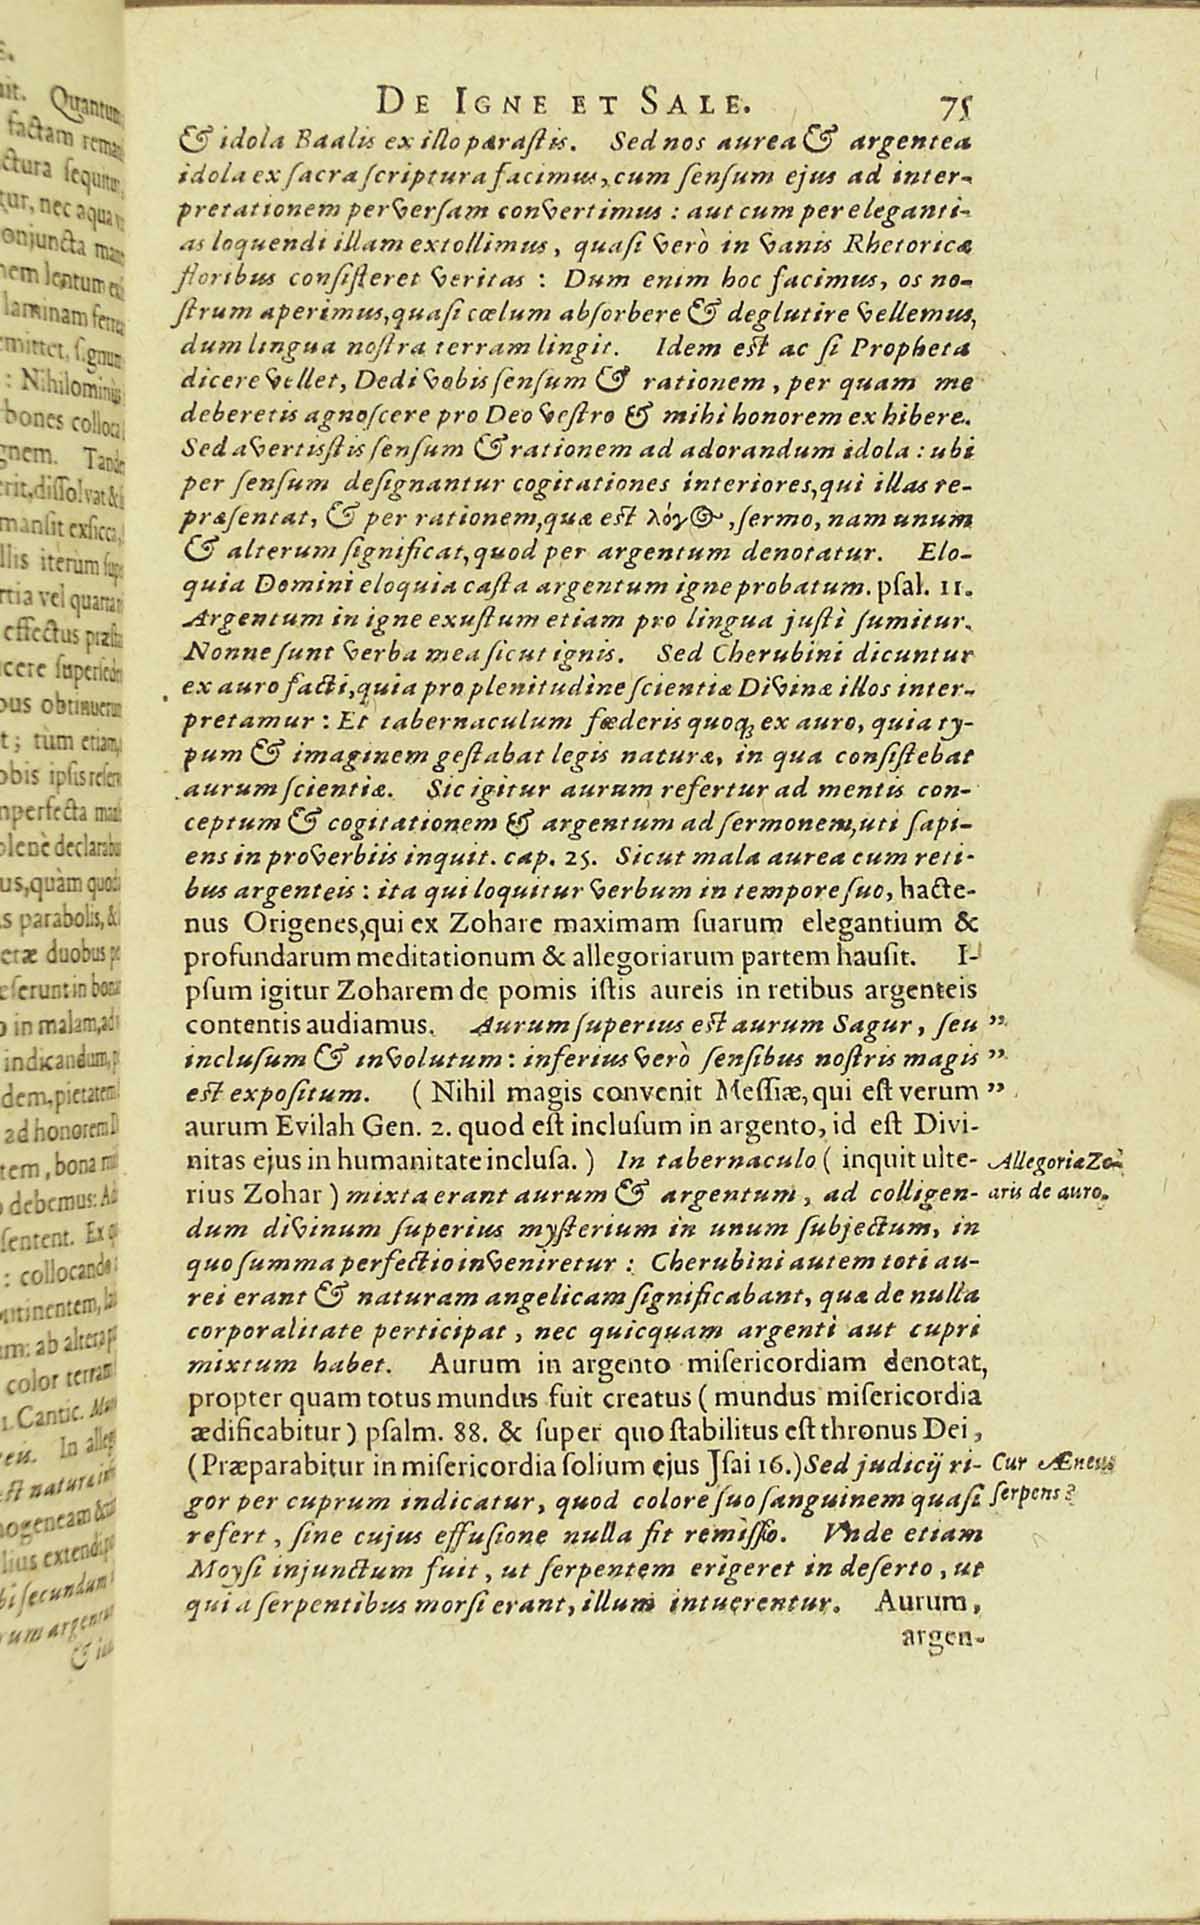 DE IGNE ET SALE. 75
& idola Baalis ex isto parastis. Sed nos aurea & argentea
idola ex sacra scriptura facimus, cum sensum ejus ad inter-
pretationem perversam convertimus: aut cum per eleganti-
as loquendi illam extollimus, quasi verò in vanis Rhetoricæ
floribus consisteret veritas: Dum enim hoc facimus, os no-
strum aperimus, quasi cœlum absorbere & deglutire vellemus,
dum lingua nostra terram lingit. Idem est ac si Propheta
dicere vellet, Dedi vobis sensum & rationem, per quam me
deberetis agnoscere pro Deo vestro & mihi honorem exhibere.
Sed avertistis sensum & rationem ad adorandum idola: ubi
per sensum designantur cogitationes interiores, qui illas re-
præsentat, & per rationem, quæ est λόγος, sermo, nam unum
& alterum significat, quod per argentum denotatur. Elo-
quia Domini eloquia casta argentum igne probatum. psal. 11.
Argentum in igne exustum etiam pro lingua justi sumitur.
Nonne sunt verba mea sicut ignis. Sed Cherubini dicuntur
ex auro facti, quia pro plenitudine scientiæ Divinæ illos inter-
pretamur: Et tabernaculum fœderis quoq; ex auro, quia ty-
pum & imaginem gestabat legis naturæ, in qua consistebat
aurum scientiæ. Sic igitur aurum refertur ad mentis con-
ceptum & cogitationem & argentum ad sermonem, uti sapi-
ens in proverbiis inquit. cap. 25. Sicut mala aurea cum reti-
bus argenteis: ita qui loquitur verbum in tempore suo, hacte-
nus Origenes, qui ex Zohare maximam suarum elegantium &
profundarum meditationum & allegoriarum partem hausit. I-
psum igitur Zoharem de pomis istis aureis in retibus argenteis
contentis audiamus. Aurum superius est aurum Sagur, seu ”
inclusum & involutum: inferius verò sensibus nostris magis ”
est expositum. (Nihil magis convenit Messiæ, qui est verum ”
aurum Evilah Gen. 2. quod est inclusum in argento, id est Divi-
nitas ejus in humanitate inclusa.) In tabernaculo (inquit ulte- Allegoria Zo-
rius Zohar) mixta erant aurum & argentum, ad colligen- aris de auro.
dum divinum superius mysterium in unum subjectum, in
quo summa perfectio inveniretur: Cherubini autem toti au-
rei erant & naturam angelicam significabant, quæ de nulla
corporalitate perticipat, nec quicquam argenti aut cupri
mixtum habet. Aurum in argento misericordiam denotat,
propter quam totus mundus fuit creatus (mundus misericordia
ædificabitur) psalm. 88. & super quo stabilitus est thronus Dei,
(Præparabitur in misericordia solium ejus Jsai 16.) Sed judicij ri- Cur Æneus
gor per cuprum indicatur, quod colore suo sanguinem quasi serpens?
refert, sine cujus effusione nulla fit remisso. Unde etiam
Moysi injunctum fuit, ut serpentem erigeret in deserto, ut
qui a serpentibus morsi erant, illum intuerentur. Aurum,
argen-